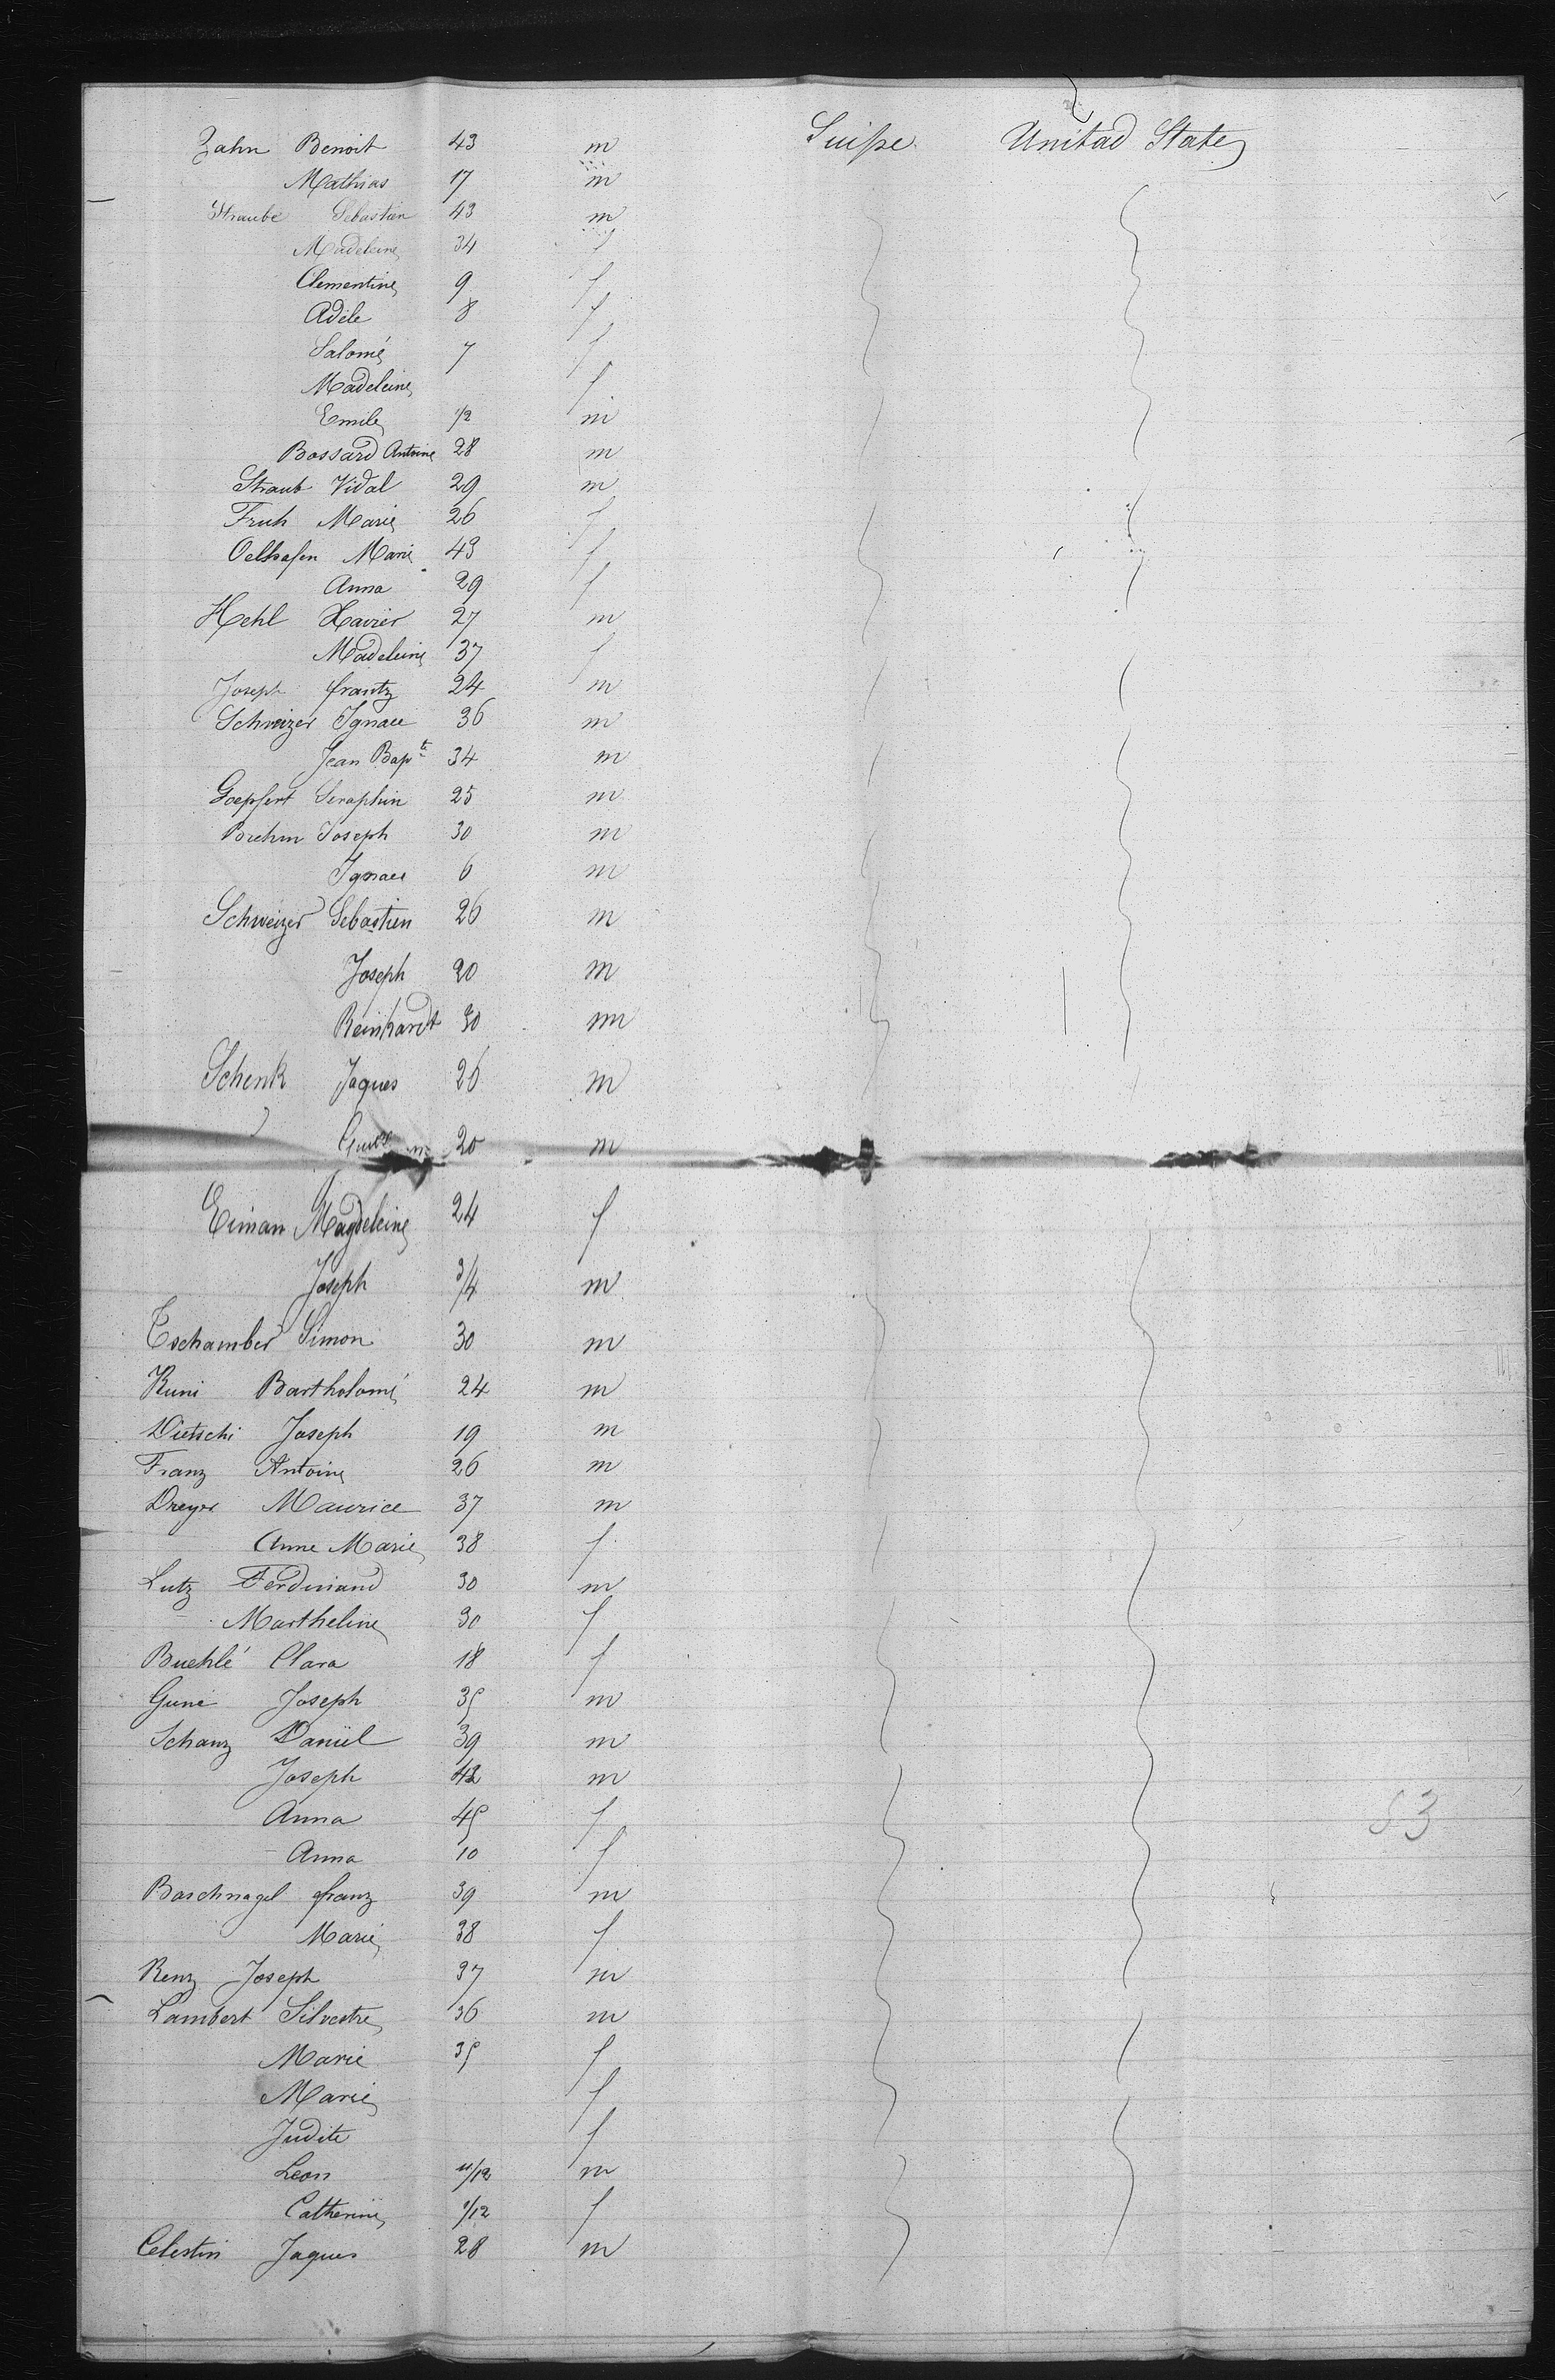 Zahn Benoit 43 m Suisse Unitad States
Mathias 17 m
Straube Sebastien 43 m
Madeleine 34 f
Clementine 9 f
Adèle 8 f
Salomé 7 f
Madeleine f
Emile 1/2 m
Bossard Antoine 28 m
Straub Vidal 29 m
Fruh Marie 26 f
Oelhafen Marie 43 f
Anna 29 f
Hehl Xavier 27 m
Madeleine 37 f
Joseph frantz 24 m
Schweizer Ignace 36 m
Jean Bapte 34 m
Goepfert Seraphin 25 m
Brehm Joseph 30 m
Ignace 6 m
Schweizer Sebastien 26 m
Joseph 20 m
Reinhardt 30 m
Schenk Jaques 26 m
20 m
Eiman Magdeleine 24 f
Joseph 3/4 m
Eschamber Simon 30 m
Kuni Bartholomé 24 m
Dietschi Joseph 19 m
Franz Antoine 26 m
Dreyer Maurice 37 m
Anne Marie 38 f
Lutz Ferdinand 30 m
Martheline 30 f
Buehlé Clara 18 f
Guni Joseph 35 m
Schanz Daniel 39 m
Joseph 42 m
Anna 45 f
Anna 10 f
Baschnagel franz 39 m
Marie 38 f
Renz Joseph 37 m
Lambert Silvestre 36 m
Marie 35 f
Marie f
Judite f
Leon 11/12 m
Catherine 1/12 f
Celestin Jaques 28 m
53